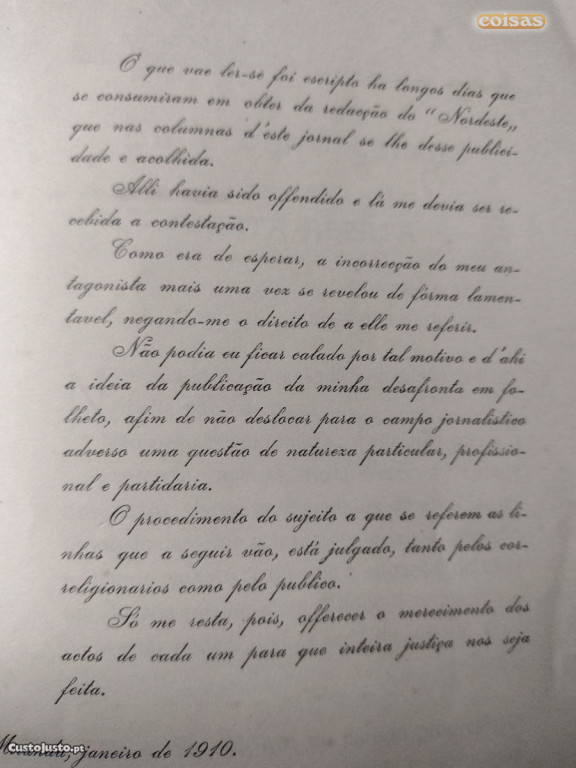 coisas
O que vae ler-se foi escripto ha longos dias que
se consumiram em obter da redacção do "Nordeste„
que nas columnas d'éste jornal se lhe désse publici-
dade e acolhida.
Alli havia sido offendido e lá me devia ser re-
cebida a contestação.
Como era de esperar, a incorrecção do meu an-
tagonista mais uma vez se revelou de fórma lamen-
tavel, negando-me o direito de a elle me referir.
Não podia eu ficar calado por tal motivo e d'ahi
a ideia da publicação da minha desafronta em fo-
lheto, afim de não deslocar para o campo jornalistico
adverso uma questão de natureza particular, profissio-
nal e partidaria.
O procedimento do sujeito a que se referem as li-
nhas que a seguir vão, está julgado, tanto pelos cor-
religionarios como pelo publico.
Só me resta, pois, offerecer o merecimento dos
actos de cada um para que inteira justiça nos seja
feita.
janeiro de 1910.
CustoJusto.pt